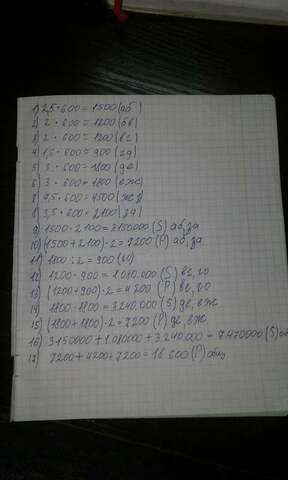 1) 2,5 · 600 = 1500 (аб)
2) 2 · 600 = 1200 (бв)
3) 2 · 600 = 1200 (вг)
4) 1,5 · 600 = 900 (гд)
5) 3 · 600 = 1800 (де)
6) 3 · 600 = 1800 (еж)
7,5 · 600 = 4500 (жз)
8) 3,5 · 600 = 2100 (за)
9) 1500 · 2100 = 3150000 (S) аб,за
10) (1500 + 2100) · 2 = 7200 (P) аб,за
11) 1800 : 2 = 900
12) 1200 · 900 = 1.080.000 (S) вг,
13) (1200 + 900) · 2 = 4200 (P) вг,
14) 1800 · 1800 = 3240.000 (S) де,еж
15) (1800 + 1800) · 2 = 7200 (P) де,еж
16) 3150000 + 1.080000 + 3.240.000 = 7.470000 (S)
17) 7200 + 4200 + 7200 = 18.600 (P) общ